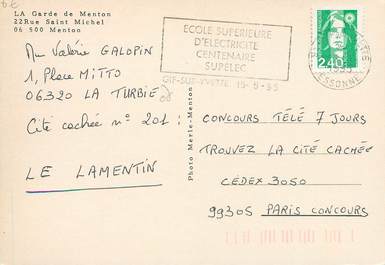 LA Garde de Menton
22Rue Saint Michel
06 500 Menton
ECOLE SUPERIEURE
D'ELECTRICITE
CENTENAIRE
SUPELEC
GIF-SUR-YVETTE 15-5-95
2,40
ESSONNE
Mr Valérie GALOPIN
1, Place MITTO
06320 LA TURBIE
Cité cachée n° 201 :
LE LAMENTIN
Photo Merle-Menton
CONCOURS TÉLÉ 7 JOURS
TROUVEZ LA CITÉ CACHÉE
CEDEX 3050
99305 PARIS CONCOURS